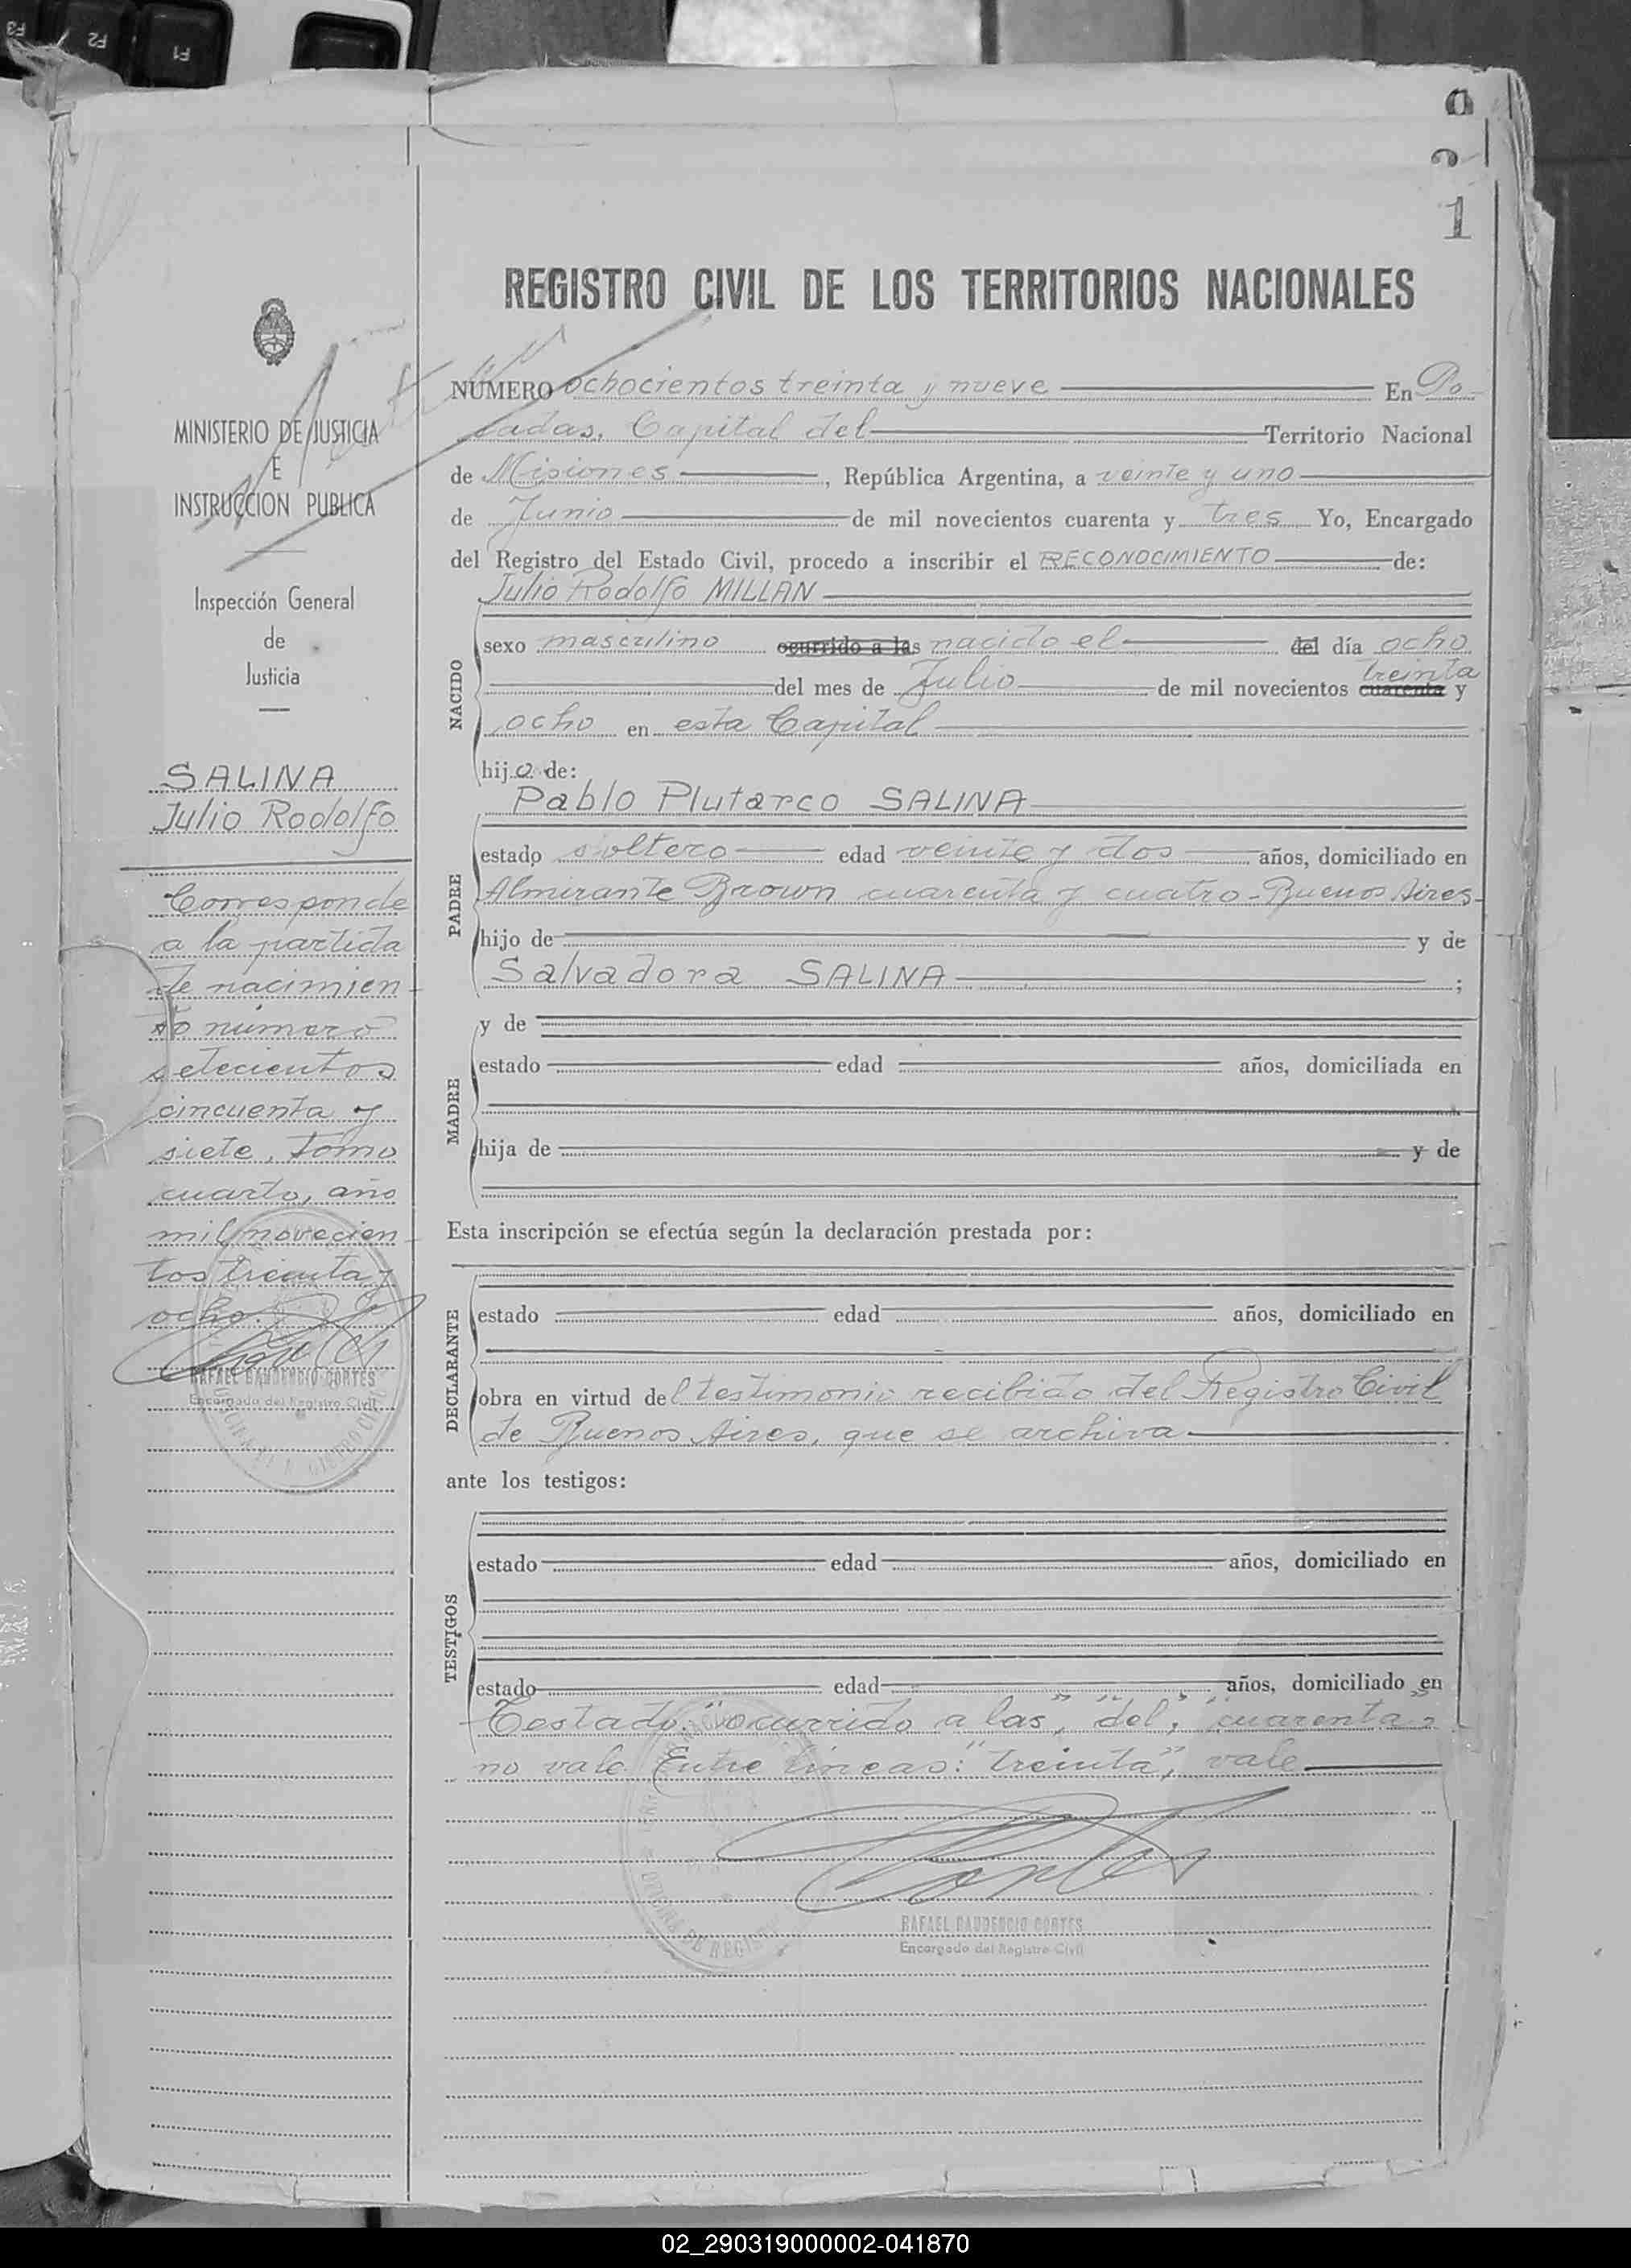 F3 F2 F1
0
2
1
REGISTRO CIVIL DE LOS TERRITORIOS NACIONALES
MINISTERIO DE JUSTICIA
E
INSTRUCCION PUBLICA
Inspección General
de
Justicia
SALINA
Julio Rodolfo
Corresponde
a la partida
de nacimien-
to número
setecientos
cincuenta y
siete, tomo
cuarto, año
mil novecien-
tos treinta y
ocho.
RAFAEL GAUDENCIO CORTES
Encargado del Registro Civil
NÚMERO ochocientos treinta y nueve En Po-
sadas, Capital del Territorio Nacional
de Misiones, República Argentina, a veinte y uno
de Junio de mil novecientos cuarenta y tres Yo, Encargado
del Registro del Estado Civil, procedo a inscribir el RECONOCIMIENTO de:
Julio Rodolfo MILLAN
NACIDO
sexo masculino ocurrido a las nacido el del día ocho
treinta
del mes de Julio de mil novecientos cuarenta y
ocho en esta Capital
hijo de:
Pablo Plutarco SALINA
PADRE
estado soltero edad veinte y dos años, domiciliado en
Almirante Brown cuarenta y cuatro - Buenos Aires-
hijo de y de
Salvadora SALINA ;
y de
MADRE
estado edad años, domiciliada en
hija de y de
Esta inscripción se efectúa según la declaración prestada por:
DECLARANTE
estado edad años, domiciliado en
obra en virtud del testimonio recibido del Registro Civil
de Buenos Aires, que se archiva
ante los testigos:
TESTIGOS
estado edad años, domiciliado en
estado edad años, domiciliado en
Testado: "ocurrido a las", "del", "cuarenta"
no vale. Entre líneas: "treinta", vale
Cortes
RAFAEL GAUDENCIO CORTES
Encargado del Registro Civil
02_290319000002-041870